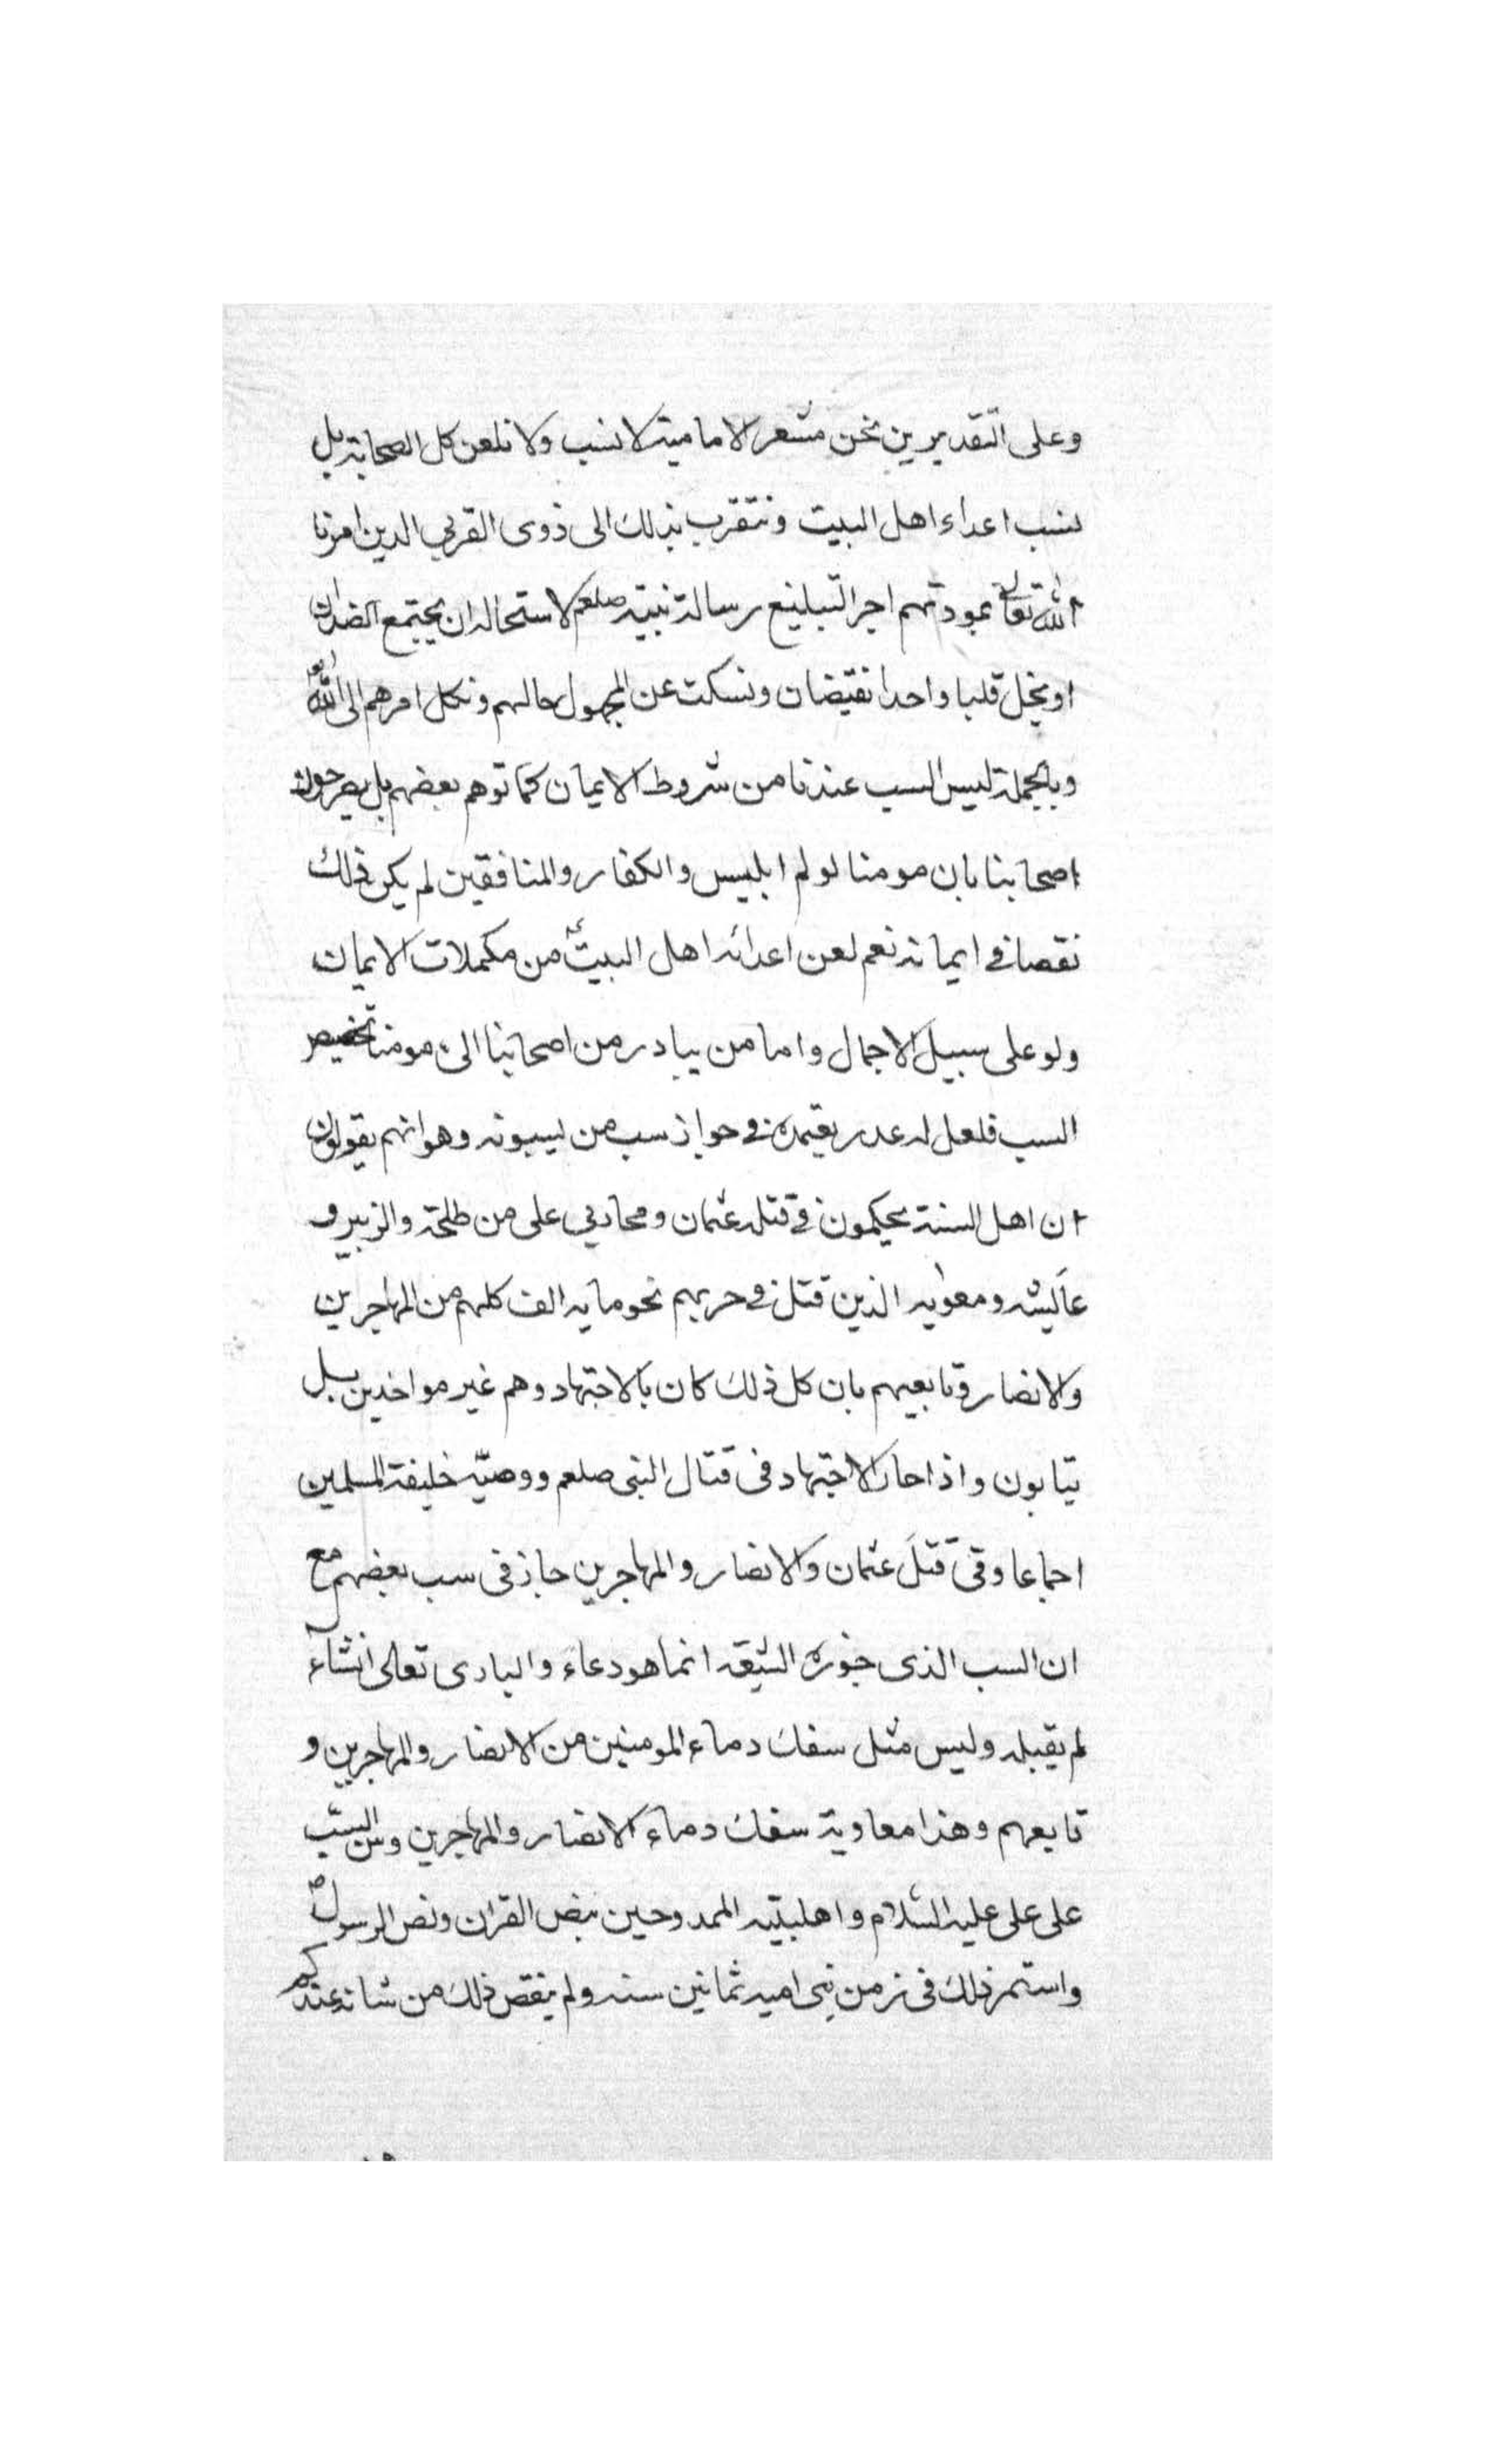 وعلى التقديرين نحن معشر الامامية لا نسب ولا نلعن كل الصحابة بل
نسب اعداء اهل البيت ونتقرب بذلك الى ذوى القربى الدين امرنا
الله تعالى بمودتهم اجر التبليغ رسالة نبيه صلعم لاستحاله ان يجتمع الضدان
او يحل قلبا واحدا نقيضان ونسكت عن المجهول حالهم ونكل امرهم الى الله
وبالجملة ليس السب عندنا من شروط الايمان كما توهم بعضهم بل يصرحون
اصحابنا بان مومنا لو لم ابليس والكفار والمنافقين لم يكن ذلك
نقصا فى ايمانه نعم لعن اعدائه اهل البيت من مكملات الايمان
ولو على سبيل الاجمال واما من يبادر من اصحابنا الى مومنا
السب فلعل له عدر يعتمده فى جواز سب من يسبونه وهو انهم يقولون
ان اهل السنة يحكمون فى قتله عثمان ومحاربى على من طلحة والزبير و
عايشه ومعويه الذين قتل فى حربهم نحو مايه الف كلهم من المهاجرين
والانصار وتابعيهم بان كل ذلك كان بالاجتهاد وهم غير مواخدين بل
يتابون واذا جاز الاجتهاد فى قتال النبى صلعم ووصيه خليفة المسلمين
اجماعا وفى قتل عثمان والانصار والمهاجرين جاز فى سب بعضهم مع
ان السب الذى جوزه الشيعه انما هو دعاء والبارى تعالى انشاء
لم يقبله وليس مثل سفك دماء المومنين من الانصار والمهاجرين و
تابعهم وهذا معاوية سفك دماء الانصار والمهاجرين وسن السب
على على عليه السلام واهلبيته الممدوحين بنص القران ونص الرسول ص
واستمر ذلك فى زمن بنى اميه ثمانين سنه ولم ينقص ذلك من شانه عندكم